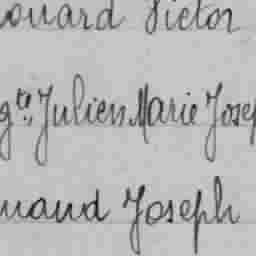 ouard Victor
gte Julien Marie Josep
mand Joseph